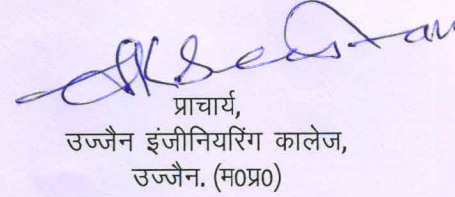 प्राचार्य,
उज्जैन इंजीनियरिंग कालेज,
उज्जैन. (म0प्र0)